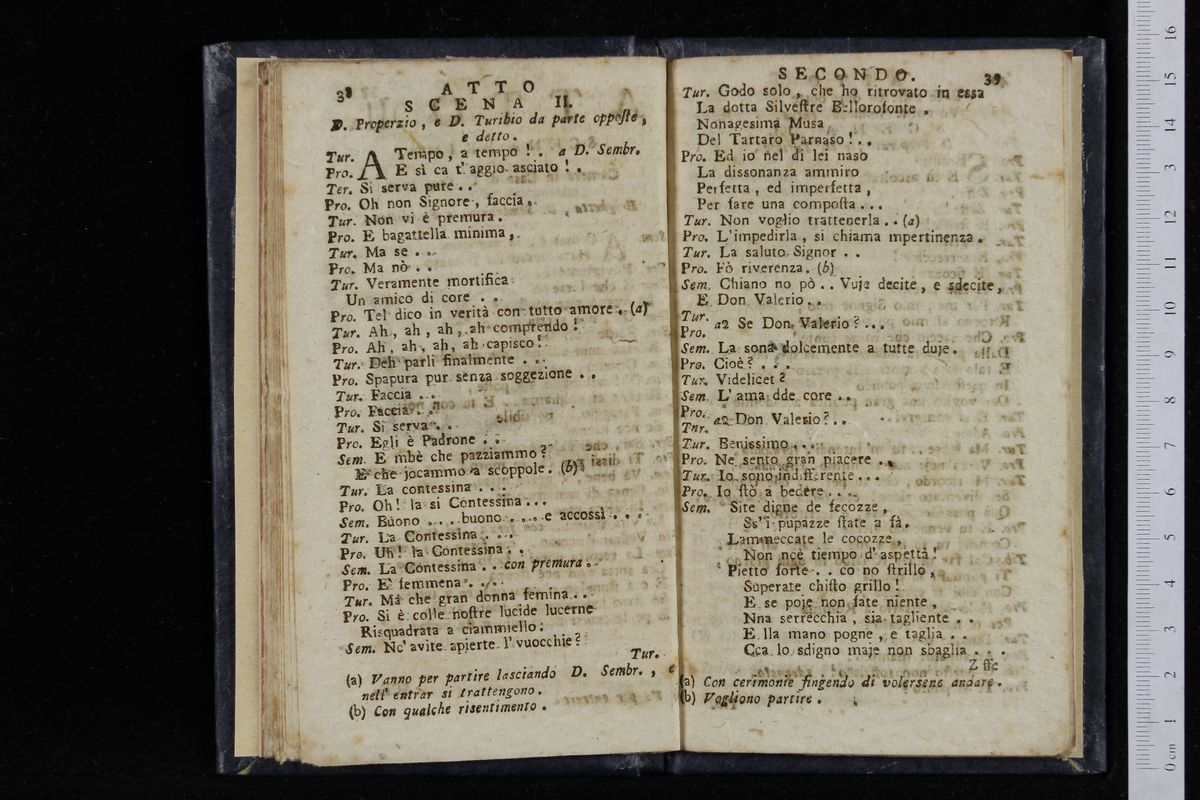 38
ATTO
SCENA II.
D. Properzio, e D. Turibio da parte opposte,
e detto.
Tur. A Tempo, a tempo!. a D. Sembr.
Pro. E sì ca t'aggio asciato!.
Ter. Si serva pure..
Pro. Oh non Signore, faccia.
Tur. Non vi è premura.
Pro. E bagattella minima,.
Tur. Ma se...
Pro. Ma nò..
Tur. Veramente mortifica
Un amico di core..
Pro. Tel dico in verità con tutto amore. (a)
Tur. Ah, ah, ah, ah comprendo!
Pro. Ah, ah, ah, ah capisco!
Tur. Deh parli finalmente...
Pro. Spapura pur senza soggezione..
Tur. Faccia...
Pro. Faccia...
Tur. Si serva...
Pro. Egli è Padrone...
Sem. E mbè che pazziammo?
E che jocammo a scoppole. (b)
Tur. La contessina...
Pro. Oh! la si Contessina...
Sem. Buono.... buono.... e accossì....
Tur. La Contessina...
Pro. Uh! la Contessina..
Sem. La Contessina.. con premura.
Pro. E' femmena...
Tur. Ma che gran donna femina..
Pro. Si è colle nostre lucide lucerne
Risquadrata a ciammiello:
Sem. Nc'avite apierte l'vuocchie?
Tur.
(a) Vanno per partire lasciando D. Sembr., e
nell'entrar si trattengono.
(b) Con qualche risentimento.
SECONDO.
39
Tur. Godo solo, che ho ritrovato in essa
La dotta Silvestre Bellorofonte.
Nonagesima Musa
Del Tartaro Parnaso!..
Pro. Ed io nel di lei naso
La dissonanza ammiro
Perfetta, ed imperfetta,
Per fare una composta...
Tur. Non voglio trattenerla.. (a)
Pro. L'impedirla, si chiama mpertinenza.
Tur. La saluto Signor..
Pro. Fò riverenza. (b)
Sem. Chiano no pò.. Vuje decite, e sdecite,
E Don Valerio..
Tur.
a2 Se Don Valerio?...
Pro.
Sem. La sona dolcemente a tutte duje.
Pro. Cioè?...
Tur. Videlicet?
Sem. L'ama dde core..
Pro.
a2 Don Valerio?..
Tnr.
Tur. Benissimo...
Pro. Ne sento gran piacere..
Tur. Io sono indifferente...
Pro. Io stò a bedere...
Sem. Site digne de fecozze,
Ss'i pupazze state a fà.
Lammeccate le cocozze,
Non ncè tiempo d'aspettà!
Pietto forte.. co no strillo,
Superate chisto grillo!
E se poje non fate niente,
Nna serrecchia, sia tagliente..
E lla mano pogne, e taglia..
Cca lo sdigno maje non sbaglia...
Z sse
(a) Con cerimonie fingendo di volersene andare.
(b) Vogliono partire.
0 cm 1 2 3 4 5 6 7 8 9 10 11 12 13 14 15 16